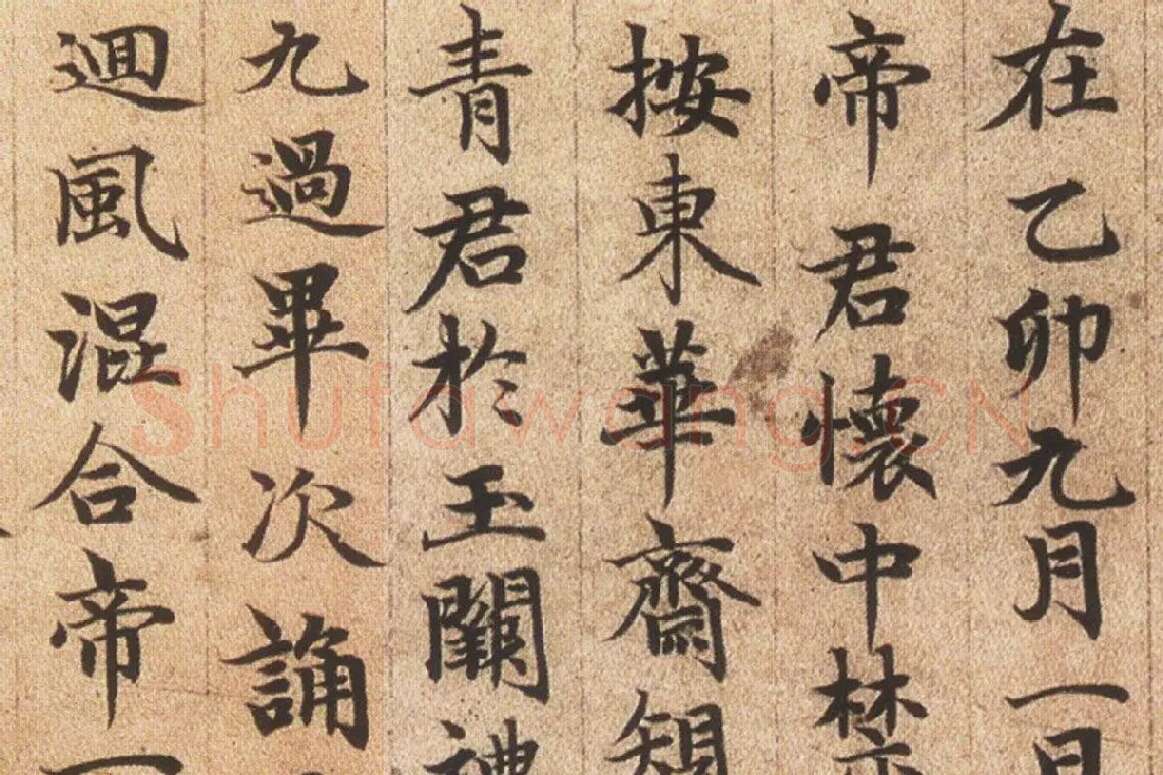 在乙卯九月一日
帝君懷中禁
按東華齋
青君於玉闕禮
九過畢次誦
逥風混合帝一
Shufawang.CN